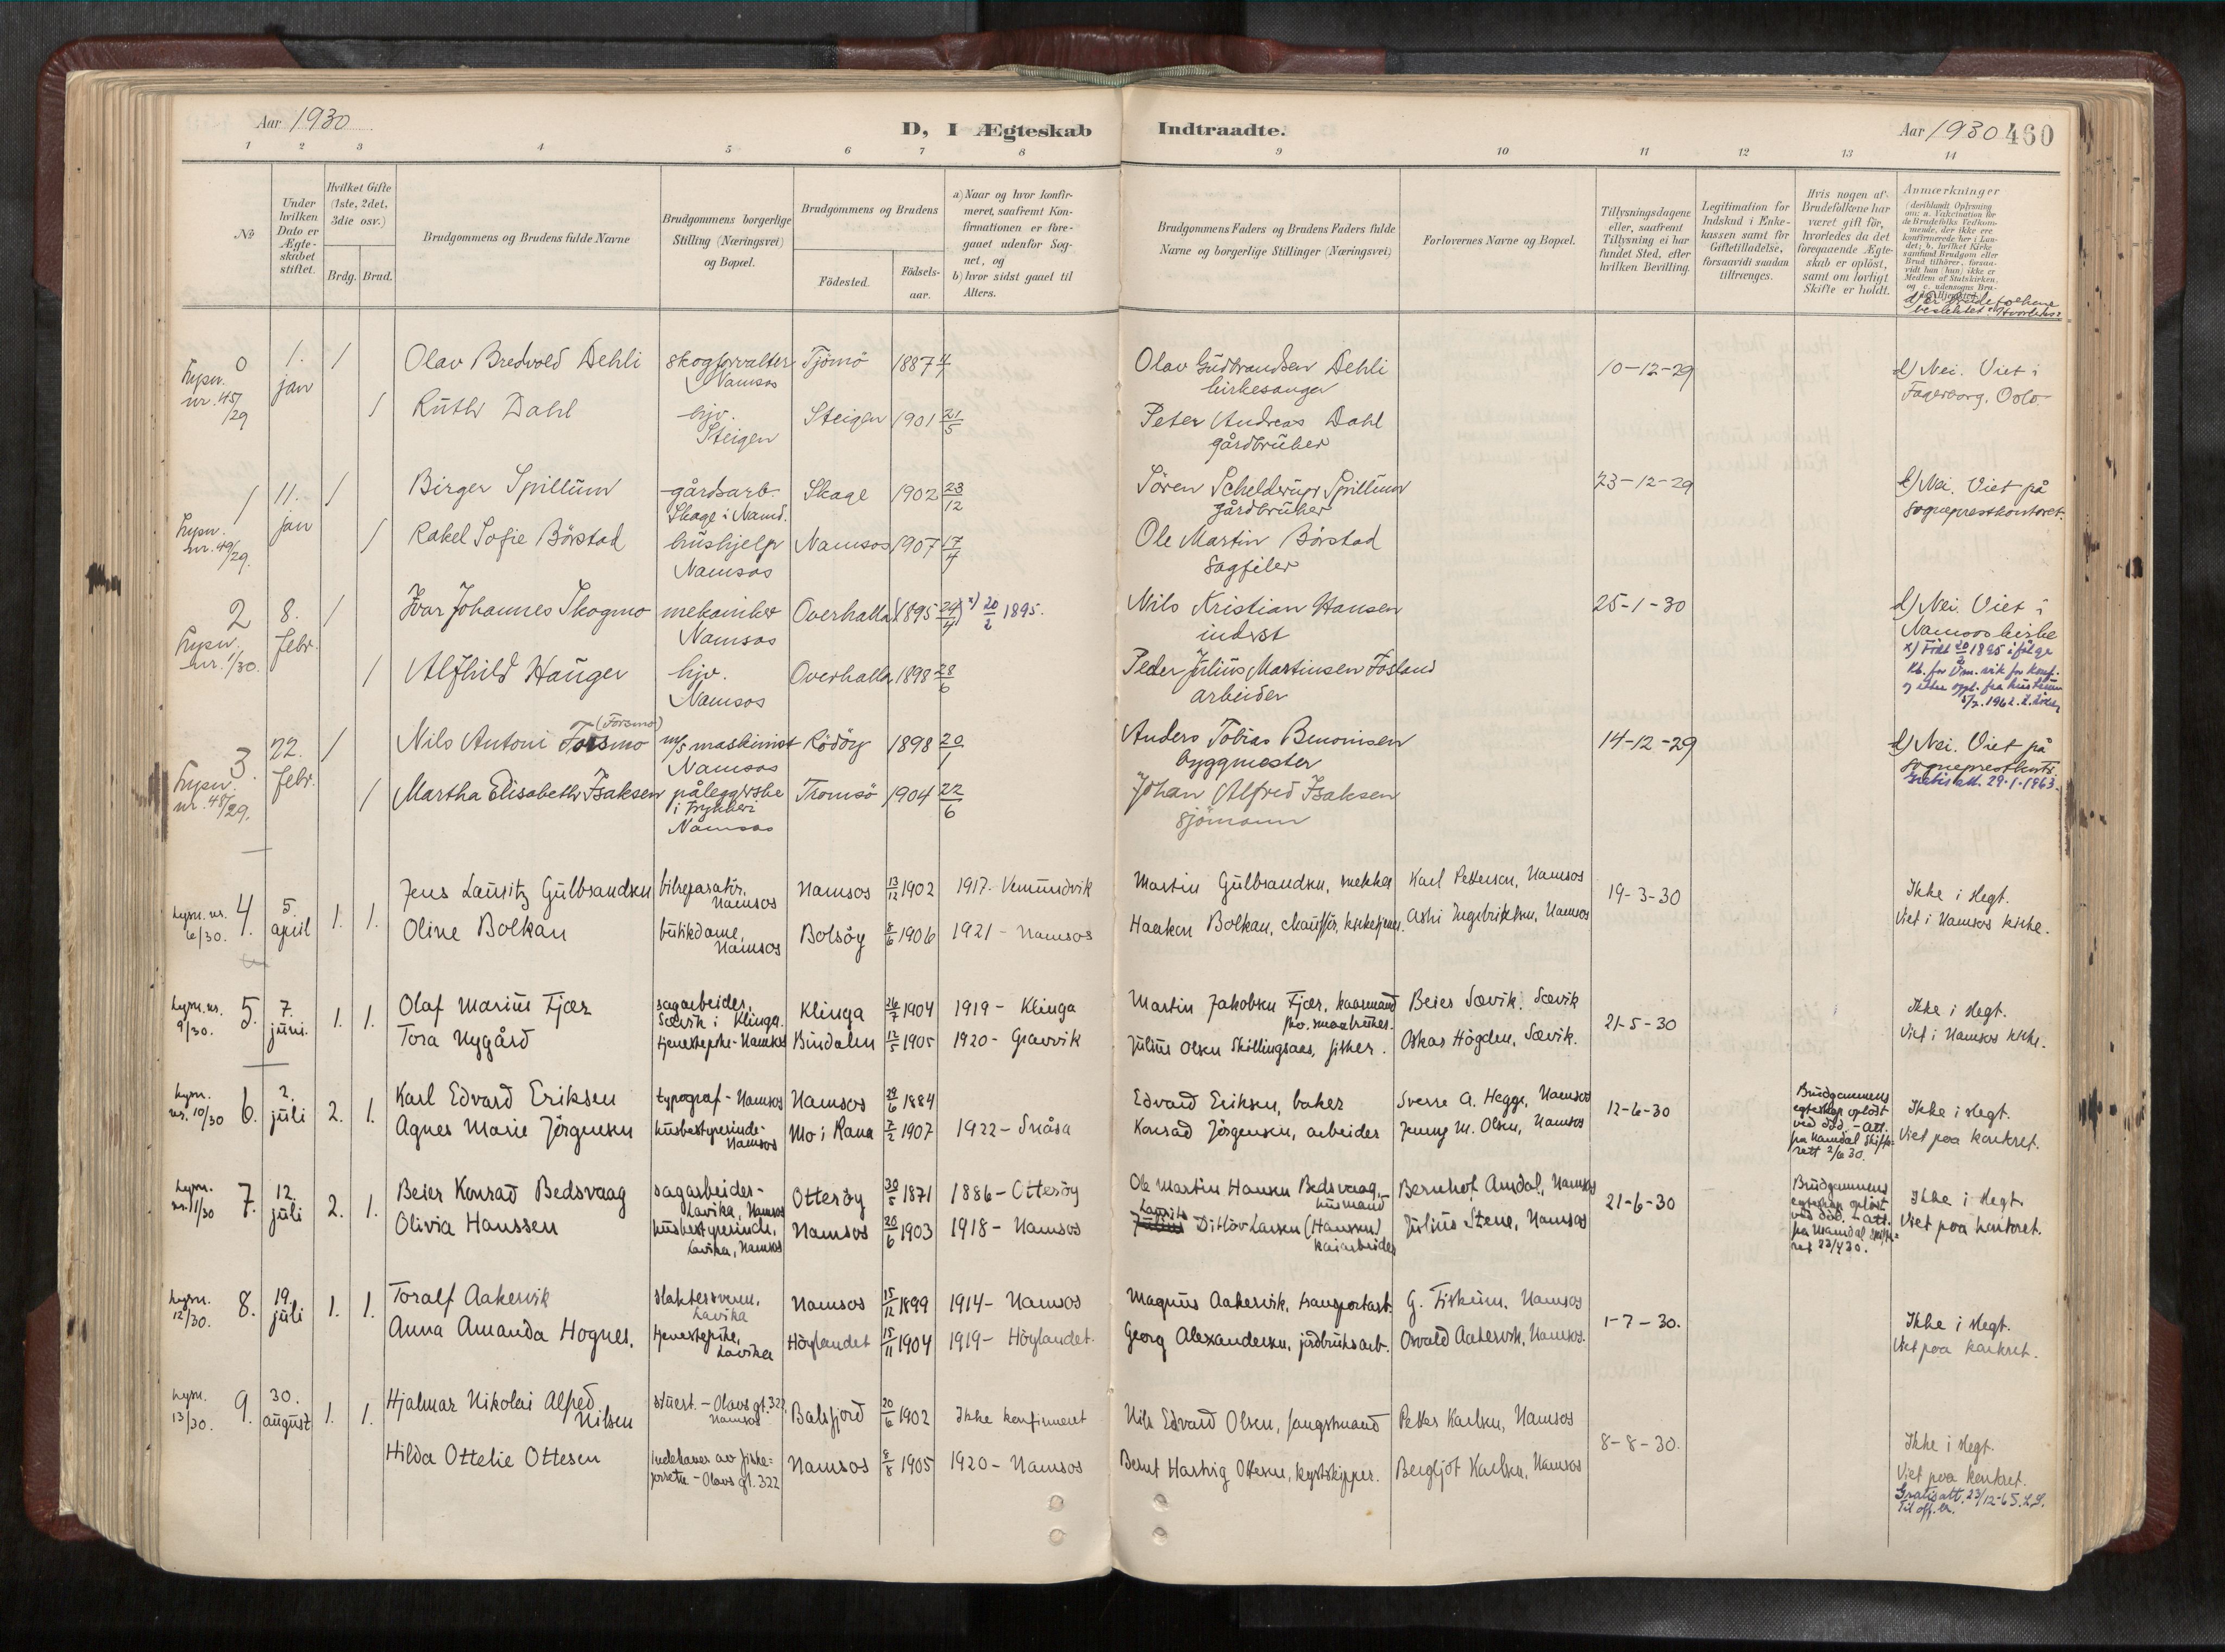 Aar 1930
D, I Ægteskab
Indtraadte.
Aar 1930 460
1 2 3 4 5 6 7 8 9 10 11 12 13 14
№
Under hvilken Dato er Ægteskabet stiftet.
Hvilket Gifte (1ste, 2det, 3die osv.)
Brdg. Brud.
Brudgommens og Brudens fulde Navne
Brudgommens borgerlige Stilling (Næringsvei) og Bopæl.
Brudgommens og Brudens
Födested.
Födselsaar.
a) Naar og hvor konfirmeret, saafremt Konfirmationen er foregaaet udenfor Sognet, og
b) hvor sidst gaaet til Alters.
Brudgommens Faders og Brudens Faders fulde Navne og borgerlige Stillinger (Næringsvei)
Forlovernes Navne og Bopæl.
Tillysningsdagene eller, saafremt Tillysning ei har fundet Sted, efter hvilken Bevilling.
Legitimation for Indskud i Enkekassen samt for Giftetilladelse, forsaavidt saadan tiltrænges.
Hvis nogen af Brudefolkene har været gift för, hvorledes da det foregaaende Ægteskab er oplöst, samt om lovligt Skifte er holdt.
Anmærkninger
(deriblandt Oplysning om: a. Vakcination for de Brudefolks Vedkommende, der ikke ere konfirmerede her i Landet; b. hvilket Kirkesamfund Brudgom eller Brud tilhörer, forsaavidt han (hun) ikke er Medlem af Statskirken, og c. udensogns
d) Er brudefolkene beslektet? Hvorledes?
0 lysn. nr. 45/29 1. jan 1 Olav Bredvold Dehli skogforvalter Namsos Tjömö 1887 4/7 Olav Gudbrandsen Dehli kirkesanger 10-12-29 d) Nei. Viet i Fagerborg, Oslo
1 Ruth Dahl hjv. Steigen Steigen 1901 21/5 Peter Andreas Dahl gårdbruker
1 lysn. nr. 49/29. 11. jan 1 Birger Spillum gårdsarb. Skage i Namd. Skage 1902 23/12 Sören Schelderup Spillum gårdbruker 23-12-29 d) Nei. Viet på sogneprestkontoret.
1 Rakel Sofie Börstad hushjelp Namsos Namsos 1907 17/4 Ole Martin Börstad sagfiler
2 lysn. nr. 1/30. 8. febr. 1 Ivar Johannes Skogmo mekaniker Namsos Overhalla (1895 24/4) x) 20/2 1895. Nils Kristian Hansen inderst 25-1-30 d) Nei. Viet i Namsos kirke
x) Född 20/2 1895 ifölge
1 Alfhild Hauger hjv. Namsos Overhalla 1898 28/6 Peder Julius Martinsen Fosland arbeider
3. lysn. nr. 48/29. 22. febr. 1 Nils Antoni Forsmo (Forsmo) m/s maskinist Namsos Rödöy 1898 20/1 Anders Tobias Benonisen byggmester 14-12-29 d) Nei. Viet på sogneprestkontr.
Gratisatt. 29-1-1963.
1 Martha Elisabeth Isaksen påleggerske i trykkeri Namsos Tromsö 1904 22/6 Johan Alfred Isaksen sjömann
lysn. nr. 6/30. 4. 5. april 1. 1. Jens Lauritz Gulbrandsen bilreparatör, Namsos Namsos 13/12 1902 1917 - Vemundvik Martin Gulbrandsen, mekker Karl Pettersen, Namsos 19-3-30 Ikke i slegt.
Oline Bolkan butikdame, Namsos Bolsöy 8/6 1906 1921 - Namsos Haakon Bolkan, chaufför, kirketjener. Ingebriktsen, Namsos Viet i Namsos kirke.
lysn. nr. 9/30. 5. 7. juni. 1. 1. Olaf Marius Fjær sagarbeider, Sævik i Klinga. Klinga 26/7 1904 1919 - Klinga Martin Jakobsen Fjær, smaabruker. Beier Sævik, Sævik 21-5-30 Ikke i slegt.
Tora Nygård tjenestepike - Namsos Bindalen 12/5 1905 1920 - Gravvik Julius Olsen Skillingsaas, fisker. Oskar Högden, Sævik. Viet i Namsos kirke.
lysn. nr. 10/30 6. 2. juli 2. 1. Karl Edvard Eriksen typograf - Namsos Namsos 29/6 1884 Edvard Eriksen, baker Sverre A. Hegge, Namsos 12-6-30 Brudgommens egteskap oplöst ved död. - att. fra Namdal skifterett 2/6 30. Ikke i slegt.
Agnes Marie Jörgensen husbestyrerinde - Namsos Mo i Rana 7/2 1907 1922 - Snåsa Konrad Jörgensen, arbeider Jenny M. Olsen, Namsos Viet paa kontoret.
lysn. nr. 11/30 7. 12. juli 2. 1. Beier Konrad Bedsvaag sagarbeider - Lavika, Namsos Otteröy 30/5 1871 1886 - Otteröy Ole Martin Hansen Bedsvaag, husmand Bernhof Amdal, Namsos 21-6-30 Brudgommens egteskap oplöst ved död. - att. fra Namdal skifteret 23/4 30. Ikke i slegt
Olivia Hanssen husbestyrerinde, Lavika, Namsos Namsos 20/6 1903 1918 - Namsos Laurits Ditlöv Larsen (Hanssen) kaiarbeider Julius Stene, Namsos Viet paa kontoret.
lysn. 12/30. 8. 19. juli 1. 1. Toralf Aakervik slaktersvenn, Lavika Namsos 15/12 1899 1914 - Namsos Magnus Aakervik, transportarb. G. Fiskum, Namsos 1-7-30. Ikke i slegt.
Anna Amanda Hognes. tjenestepike, Lavika Höylandet 15/11 1904 1919 - Höylandet. Georg Alexandersen, jordbruksarb. Osvald Aakervik, Namsos. Viet paa kontoret.
lysn. 13/30. 9. 30. august 1. 1. Hjalmar Nikolai Alfred Nilsen stuert. - Olavs gt. 322, Namsos Balsfjord 20/6 1902 Ikke konfirmert Nils Edvard Olsen, fangstmand Petter Karlsen, Namsos 8-8-30. Ikke i slegt.
Hilda Ottelie Ottesen indehaver av fiskeforretn. - Olavs gt. 322 Namsos 8/8 1905 1920 - Namsos Bernt Hartvig Ottesen, kystskipper. Bergljot Karlsen, Namsos Viet paa kontoret.
Gratisatt. 23/12-65. L.S.
Til off. br.